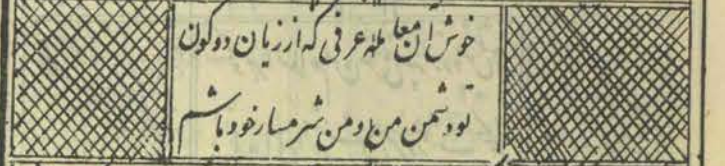 خوش آن معامله عرفی که از زیان دو کون
تو دشمن من و من شرمسار خود باشم